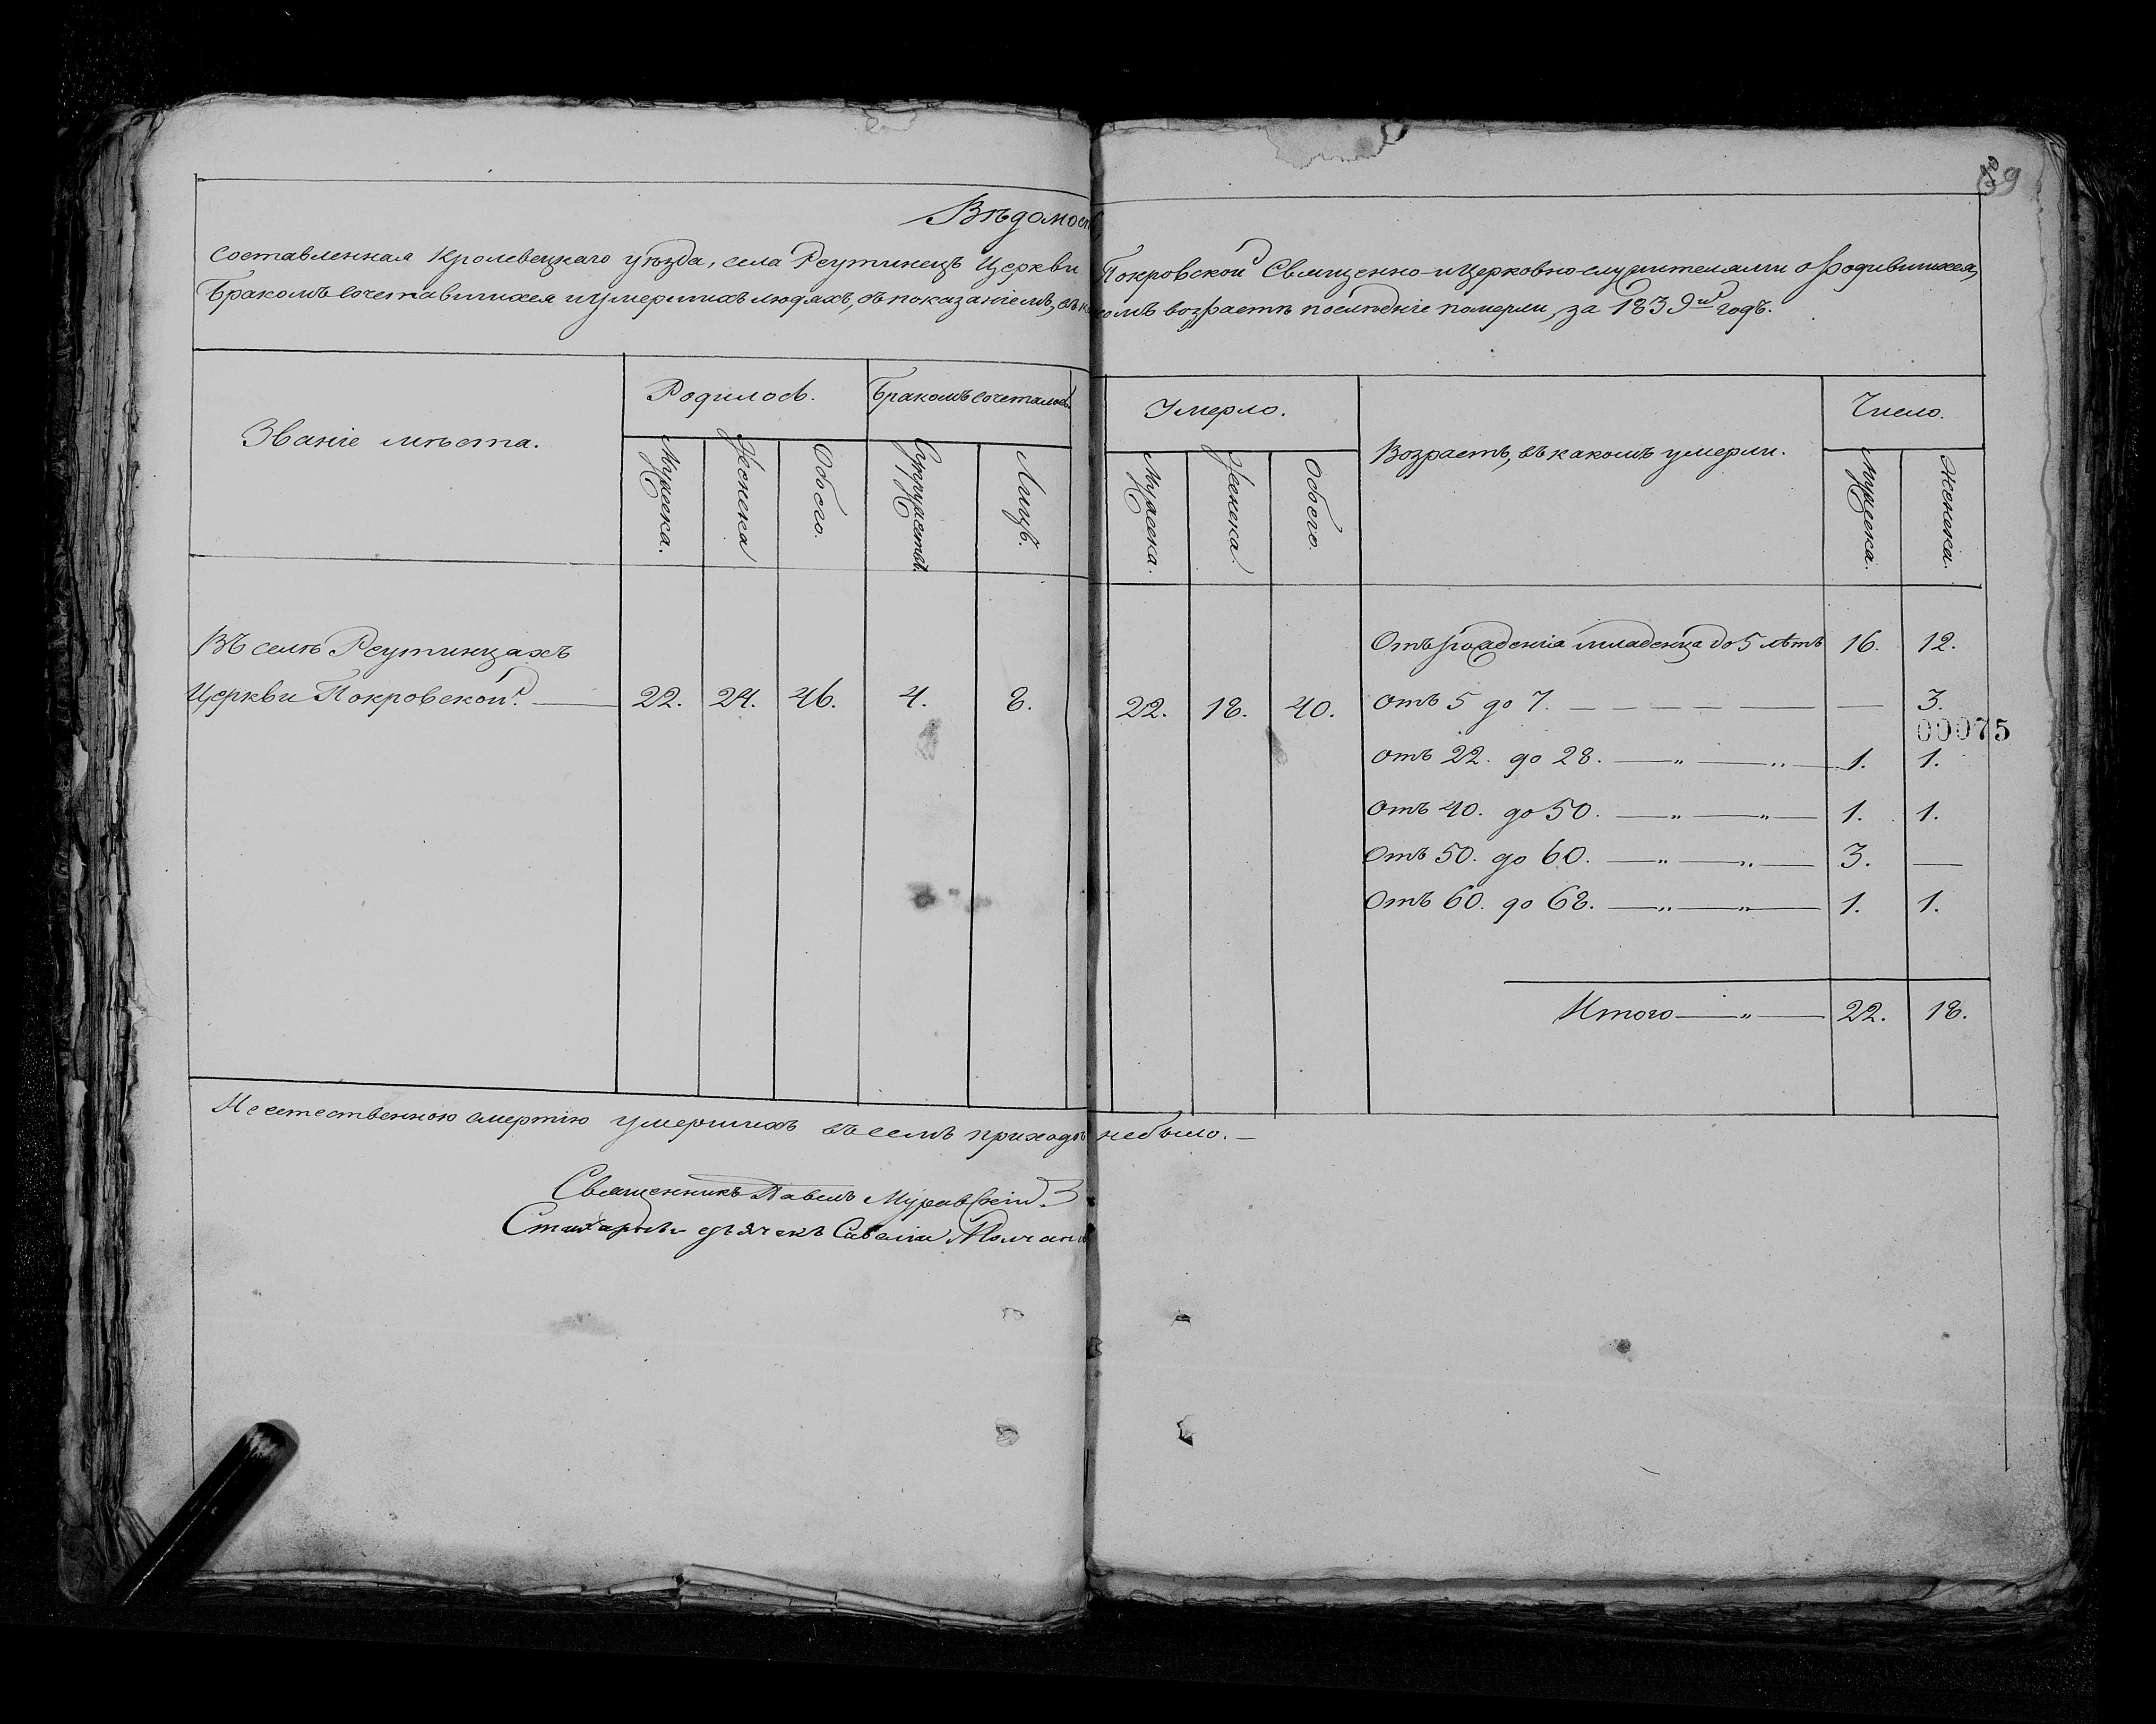 89
Вѣдомость
составленная Кролевецкаго уѣзда, села Реутинецъ Церкви Покровской Священно-и Церковно-служителями о родившихся,
Бракомъ сочетавшихся и умершихъ людяхъ, съ показаніемъ, въ какомъ возрастѣ послѣдніе померли, за 1839й годъ.
Званіе мѣста.
Родилось.
Бракомъ сочеталось
Умерло.
Возрастъ, въ какомъ умерли.
Число.
Мужеска. Женска Обоего. Супружествъ. Лицъ. Мужеска. Женска. Обоего. Мужеска. Женска.
Въ селѣ Реутинцахъ
Церкви Покровской. 22. 24. 46. 4. 8. 22. 18. 40.
Отъ рожденія младенца до 5 лѣтъ 16. 12.
Отъ 5 до 7. — — 3.
00075
Отъ 22. до 28. — „ — „ — 1. 1.
Отъ 40. до 50. — „ — „ — 1. 1.
Отъ 50. до 60. — „ — „ — 3. —
Отъ 60. до 68. — „ — „ — 1. 1.
Итого — „ — 22. 18.
Не естественною смертію умершихъ въ семъ приходѣ не было. —
Священникъ Павелъ Муравскій
Стихарный дьячекъ Савелій